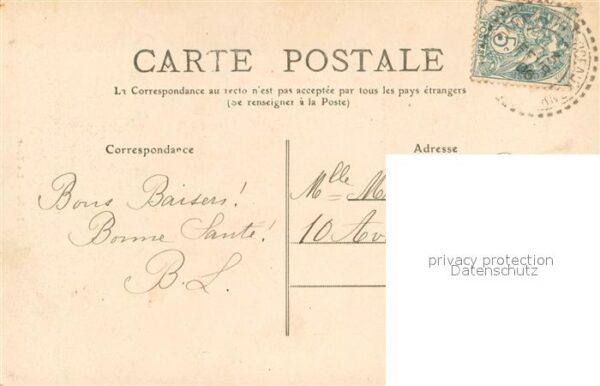 CARTE POSTALE
La Correspondance au recto n'est pas acceptée par tous les pays étrangers
(Se renseigner à la Poste)
Correspondance
Adresse
Bons Baisers!
Bonne Santé!
B. L.
Mlle M
10 Av
privacy protection
Datenschutz